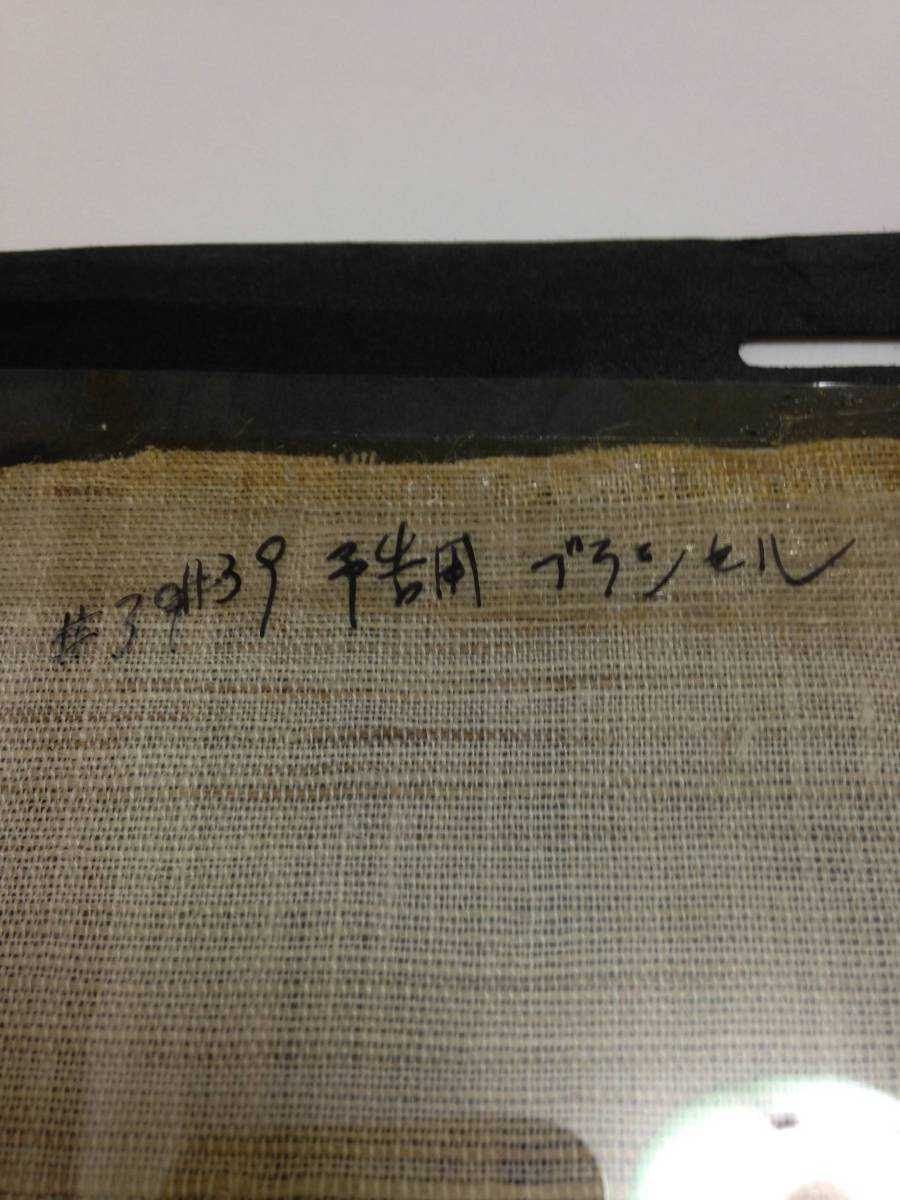 #39#39 予告用 ブランセル